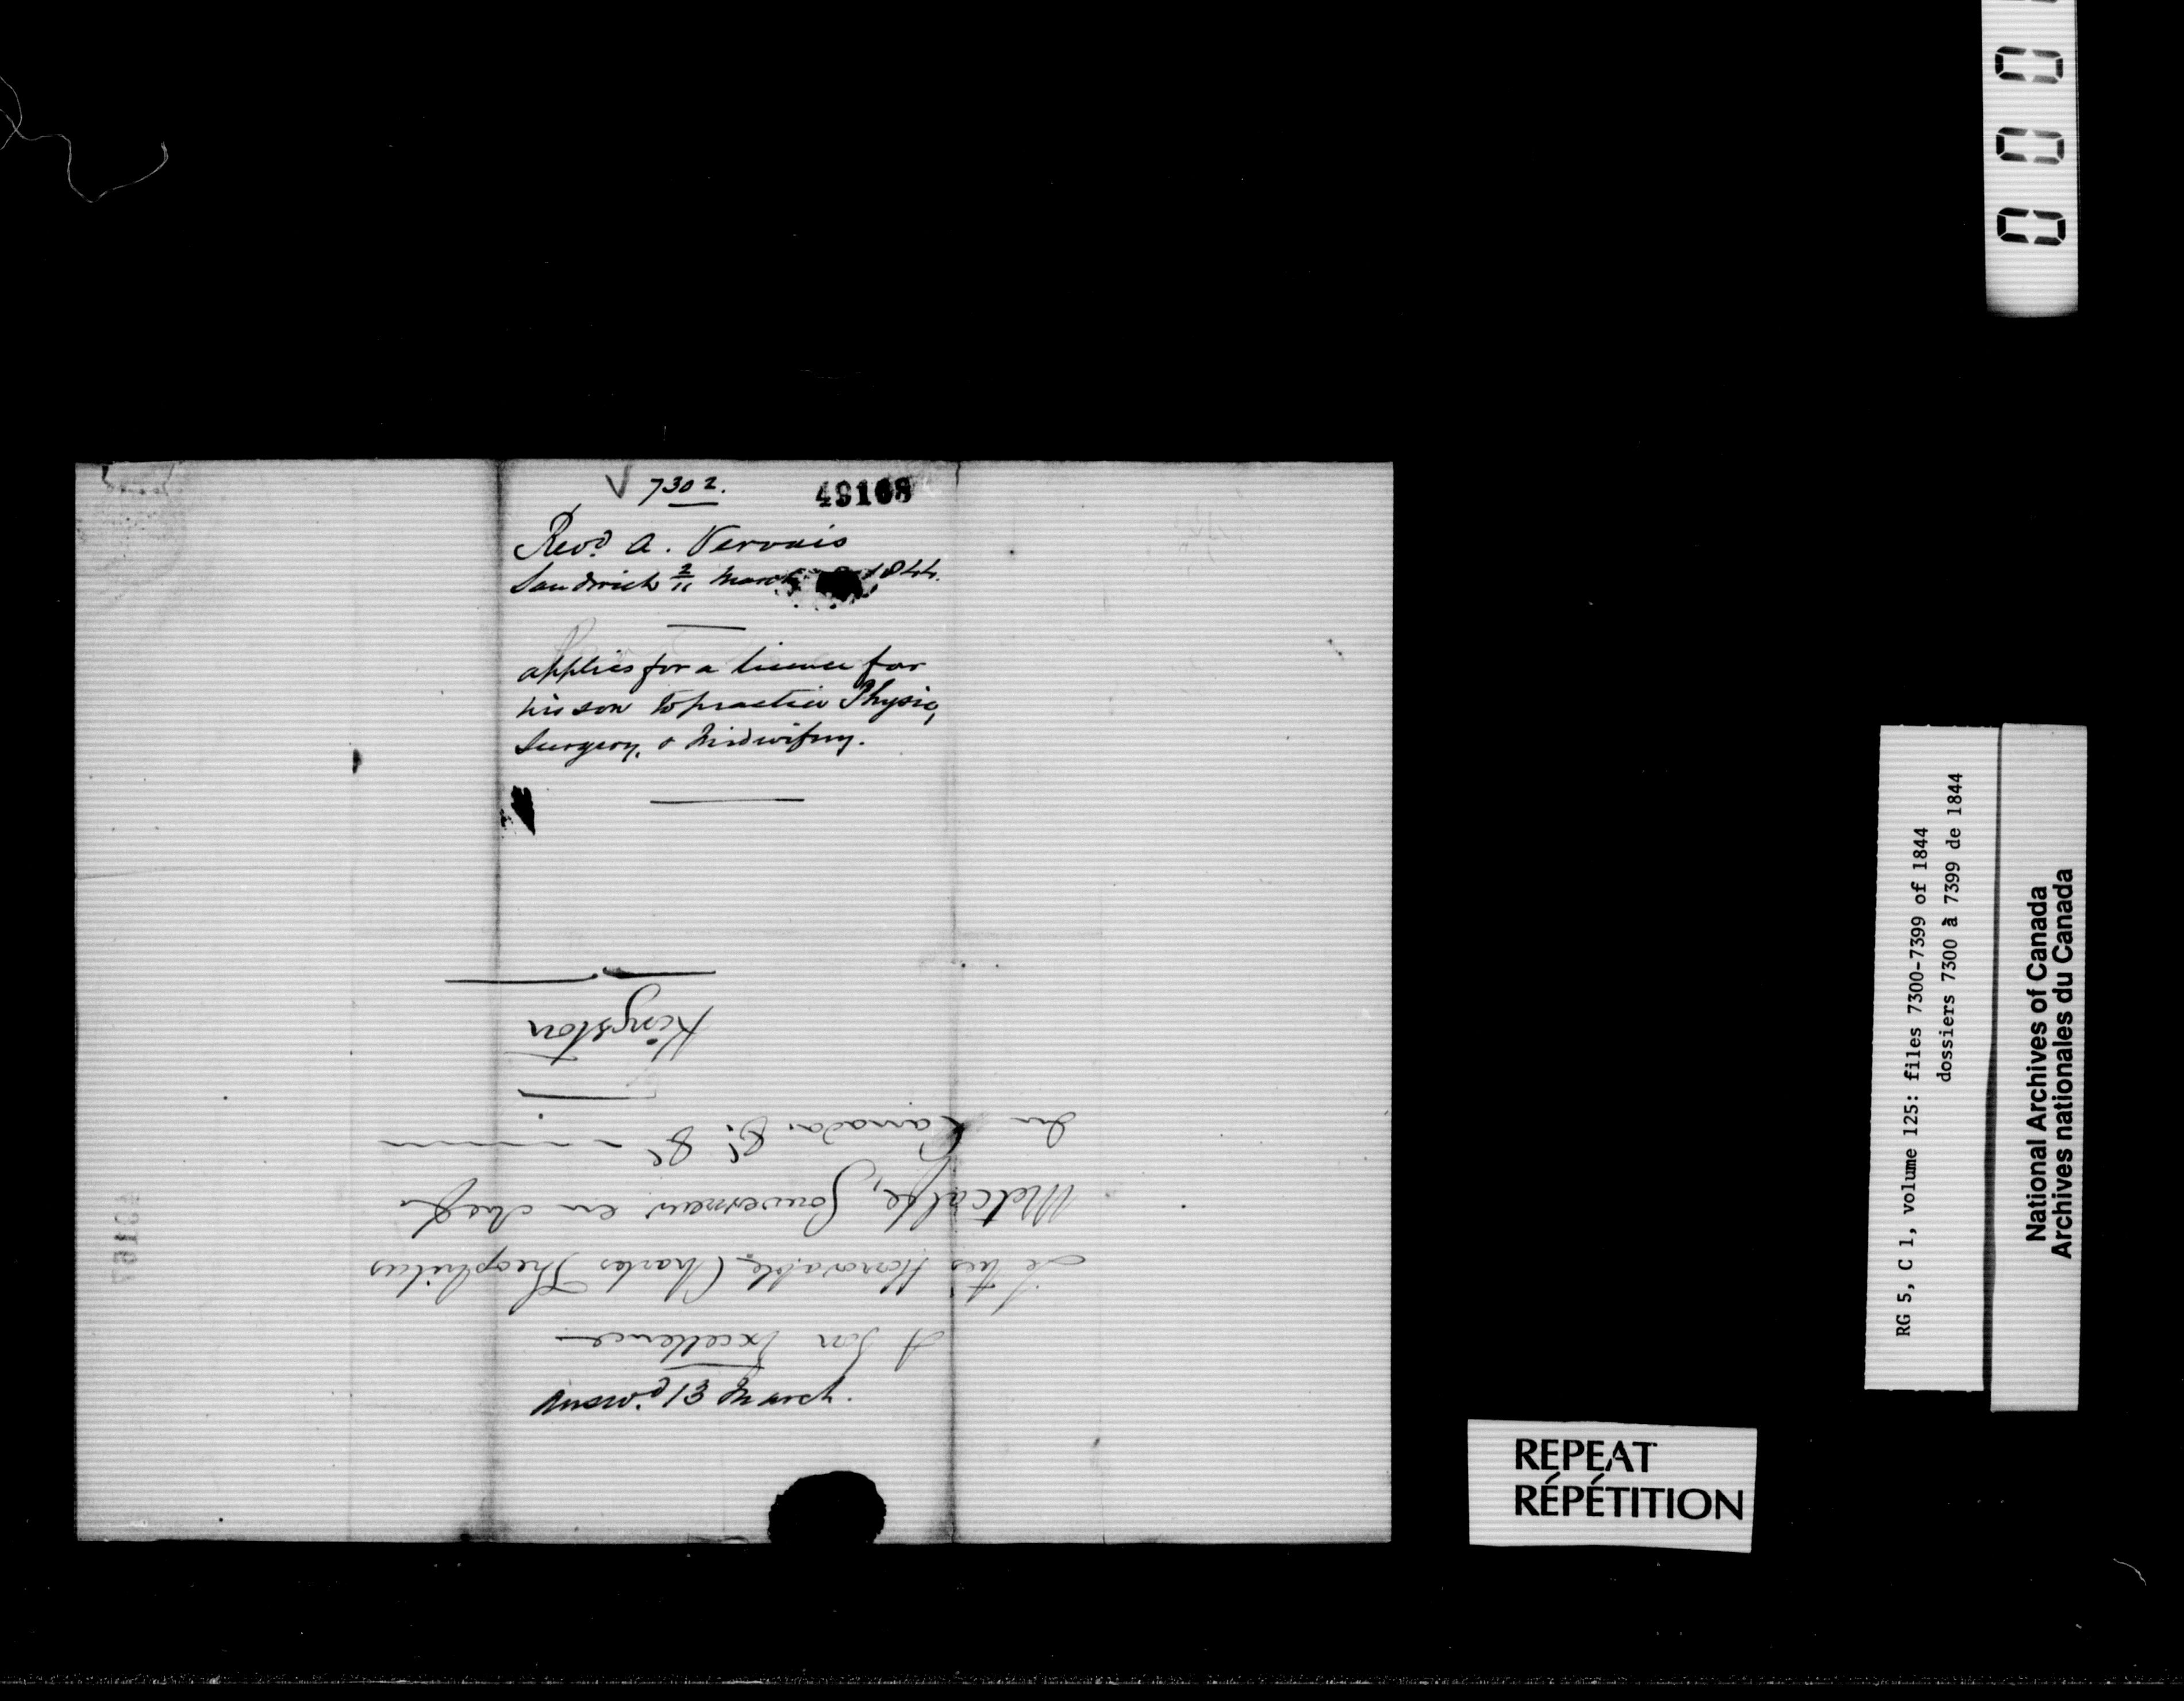 7302.
49168
Revd. A. Vervais
Sandwich 2/11 March 1844.
applies for a licence for
his son to practice Physic,
Surgery, & Midwifery.
Answd. 13 March.
A Son Excellence
Le très Honorable Charles Théophilus
Metcalfe, Gouverneur en chef
du Canada. &c. &c
Kingston
49167
RG 5, C 1, volume 125: files 7300-7399 of 1844
dossiers 7300 à 7399 de 1844
National Archives of Canada
Archives nationales du Canada
REPEAT
RÉPÉTITION
000